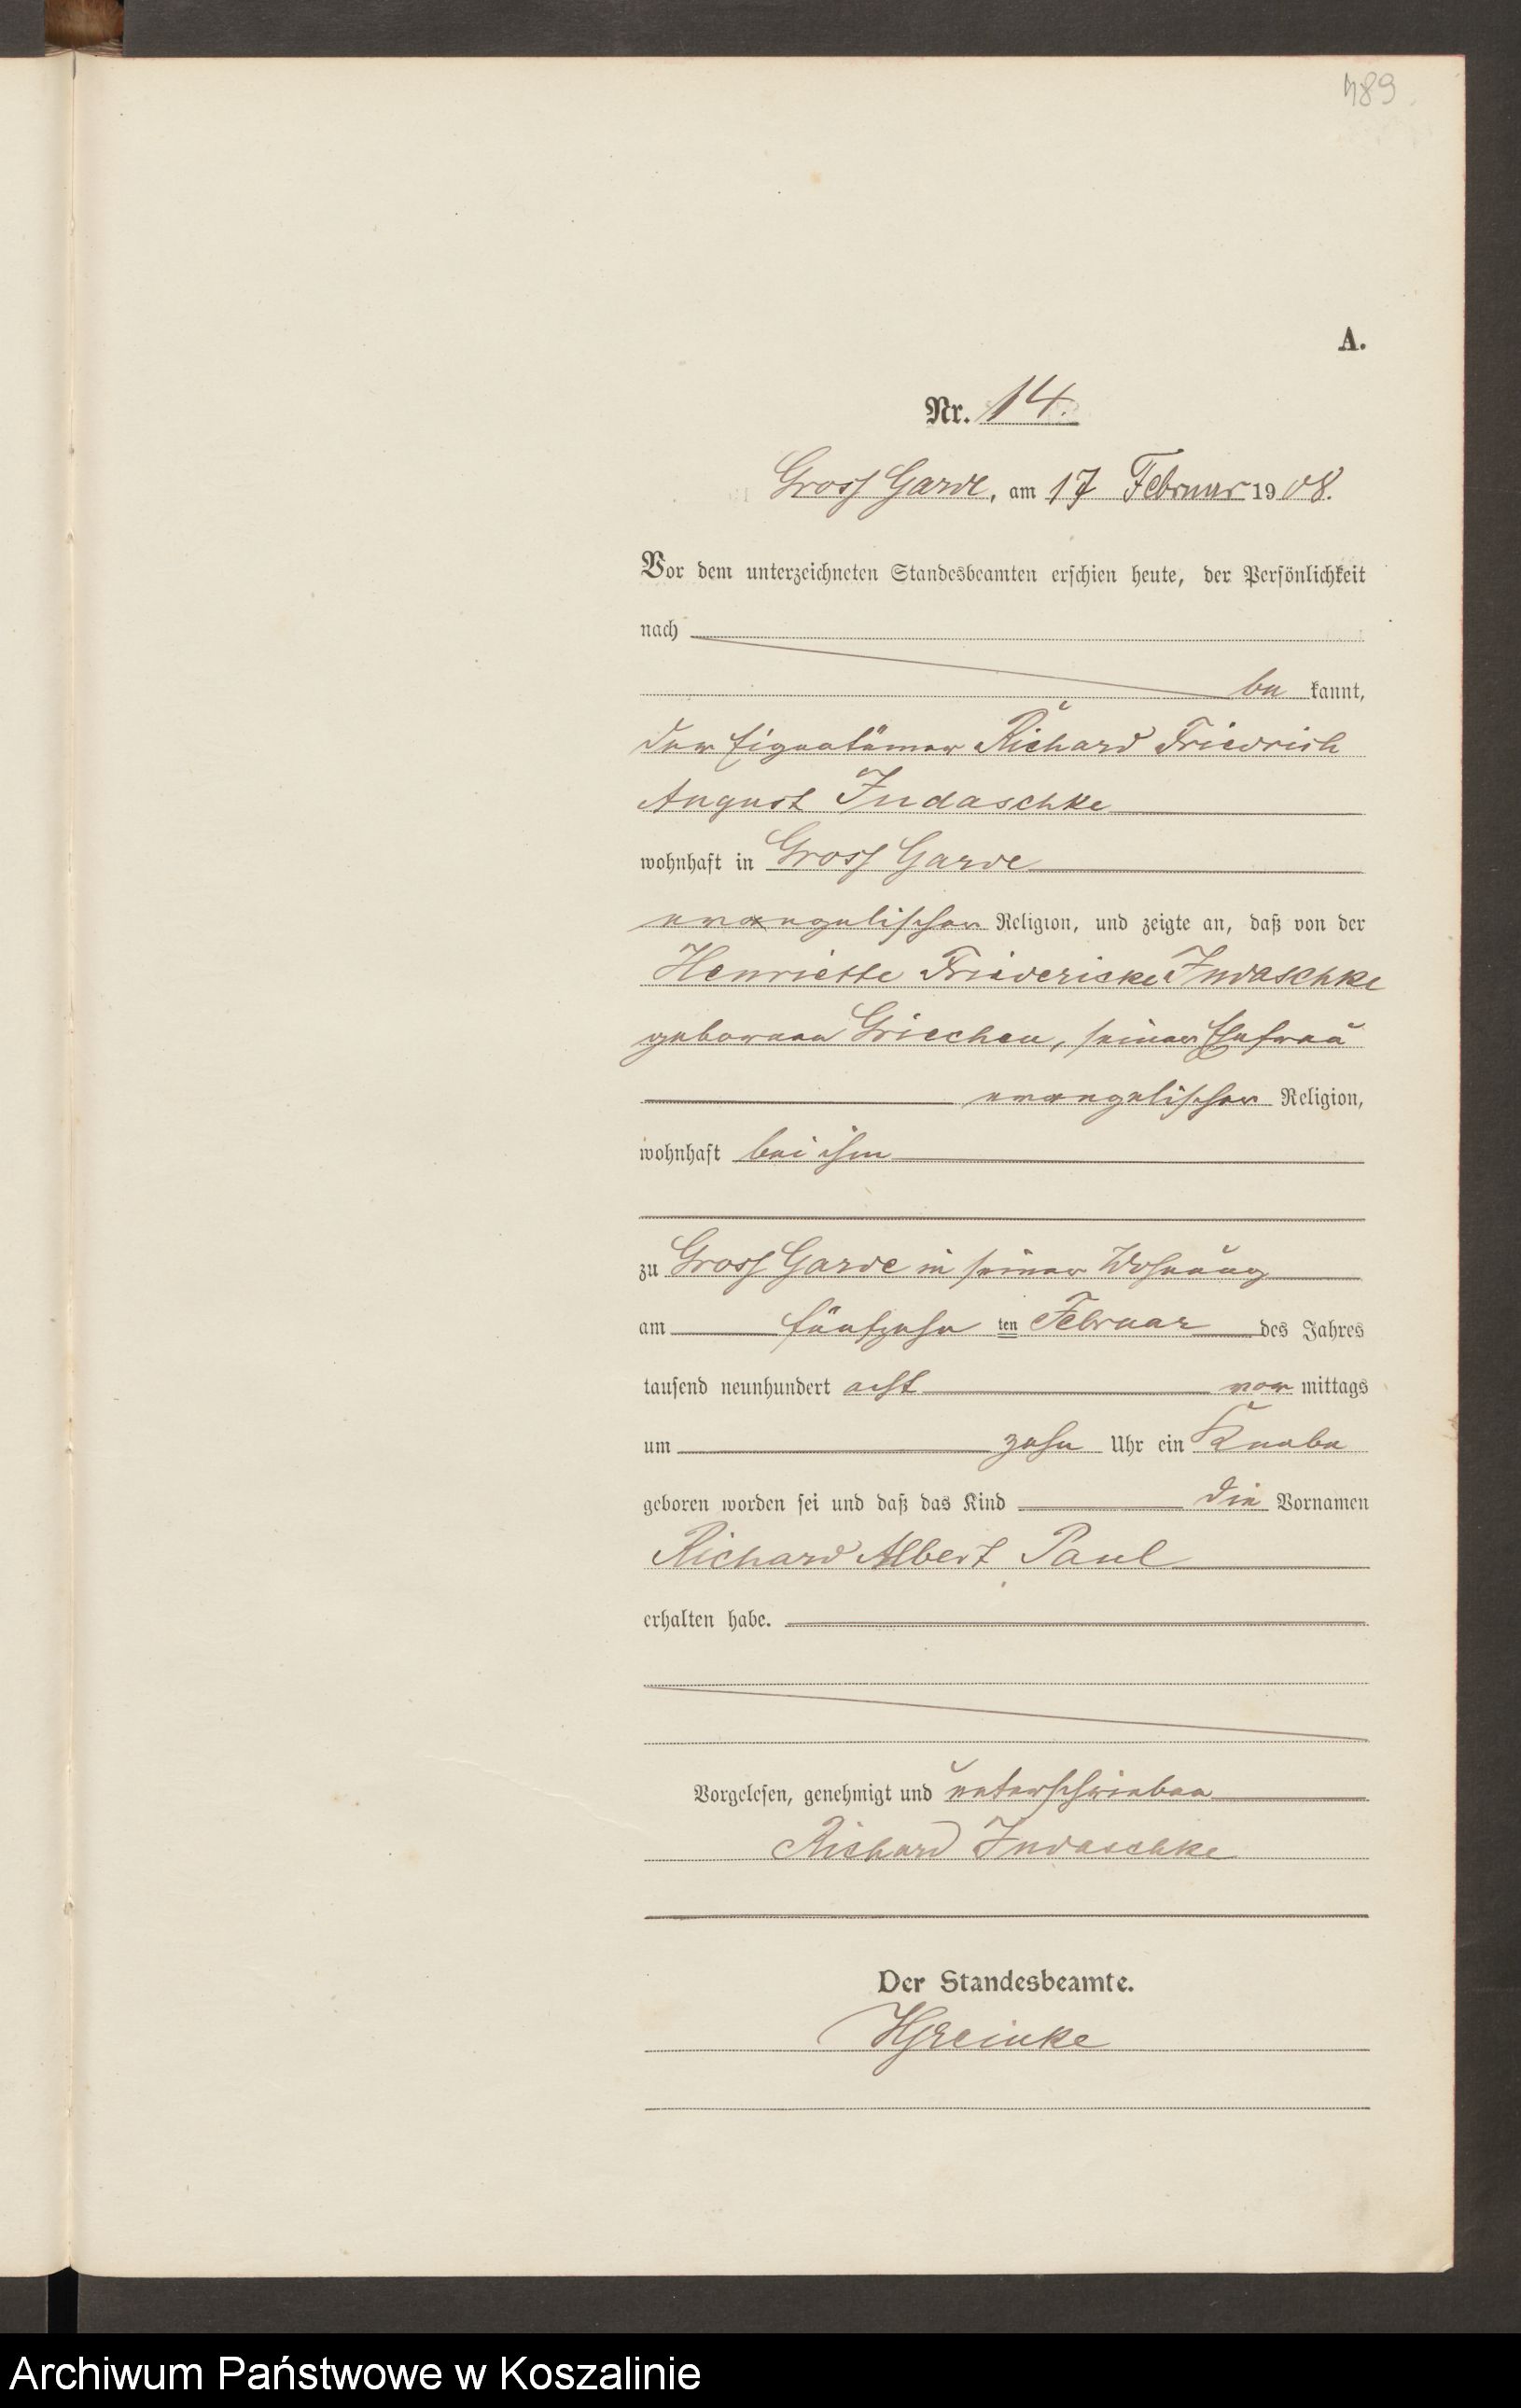 489
A.
Nr. 14.
Gross Garde, am 17 Februar 1908.
Vor dem unterzeichneten Standesbeamten erschien heute, der Persönlichkeit
nach
be kannt,
der Eigentümer Richard Friedrich
August Judaschke
wohnhaft in Gross Garde
evangelischer Religion, und zeigte an, daß von der
Henriette Friedericke Judaschke
geborenen Griechen, seiner Ehefrau
evangelischer Religion,
wohnhaft bei ihm
zu Gross Garde in seiner Wohnung
am fünfzehn ten Februar des Jahres
tausend neunhundert acht vor mittags
um zehn Uhr ein Knabe
geboren worden sei und daß das Kind die Vornamen
Richard Albert Paul
erhalten habe.
Vorgelesen, genehmigt und unterschrieben
Richard Judaschke
Der Standesbeamte.
Archiwum Państwowe w Koszalinie